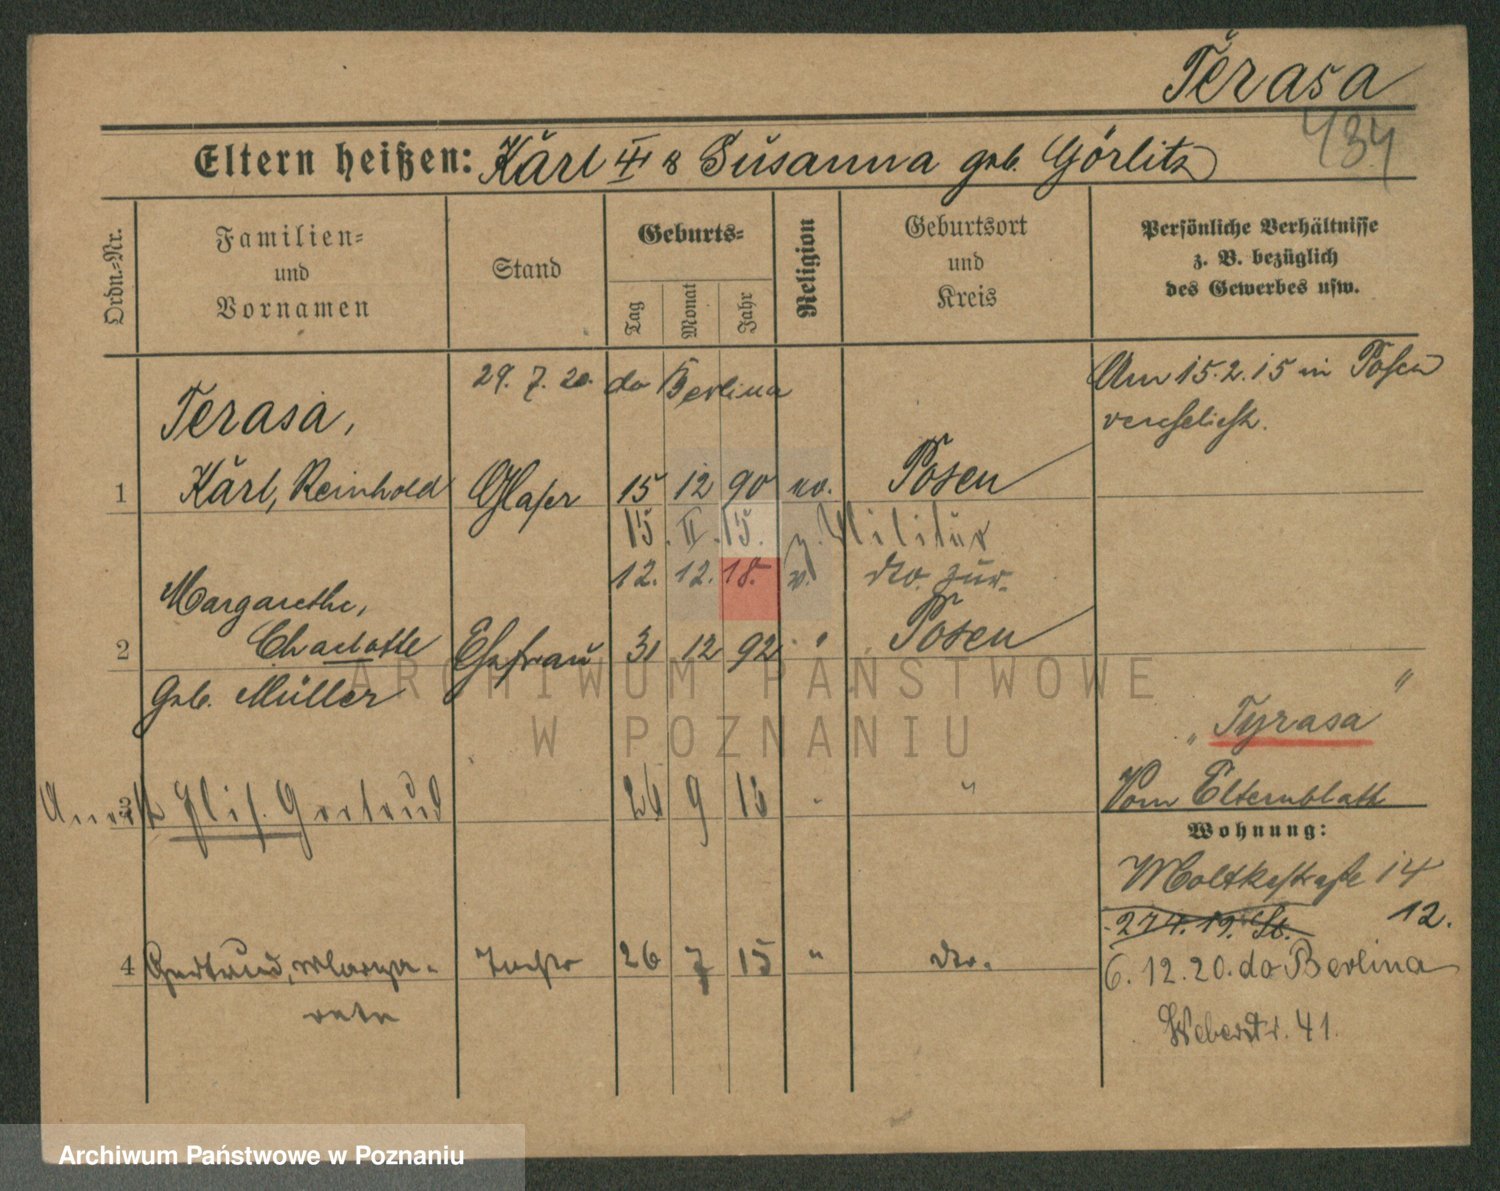 Terasa
434
Eltern heißen: Karl III & Susanna geb. Görlitz
Ordn.-Nr.
Familien-
und
Vornamen
Stand
Geburts-
Tag
Monat
Jahr
Religion
Geburtsort
und
Kreis
Persönliche Verhältnisse
z. B. bezüglich
des Gewerbes usw.
29. 7. 20. do Berlina
Am 15.2.15 in Posen
verehelicht.
Terasa,
1 Karl, Reinhold Glaser 15 12 90 ev. Posen
15. II. 15. z. Militär
12. 12. 18. v. do. zur.
Margarethe,
2 Charlotte Ehefrau 31 12 92 " Posen
geb. Müller
ARCHIWUM PAŃSTWOWE
W POZNANIU
"Tyrasa"
3 Elis. Gertrud 26 9 15 " "
Vom Elternblatt
Wohnung:
Moltkestraße 14
27.4.19. 12.
4 Gertrud, Marga- Tochter 26 7 15 " do.
rete
6. 12. 20. do Berlina
Weberstr. 41.
Archiwum Państwowe w Poznaniu